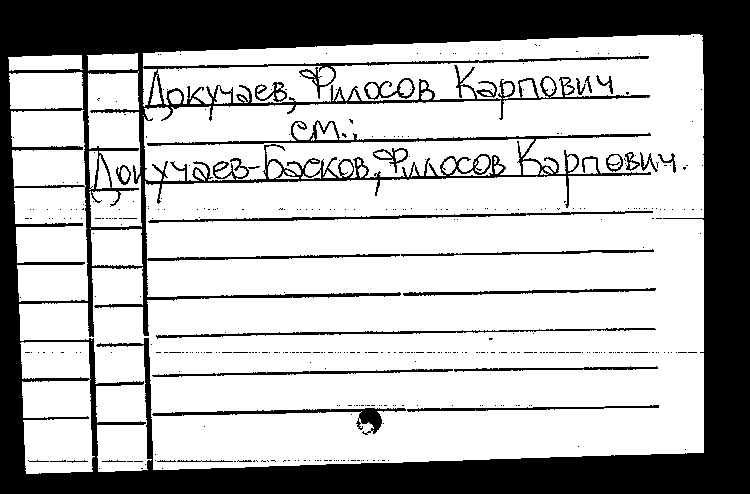 Докучаев, Филосов Карпович.
см.:
Докучаев-Басков, Филосов Карпович.